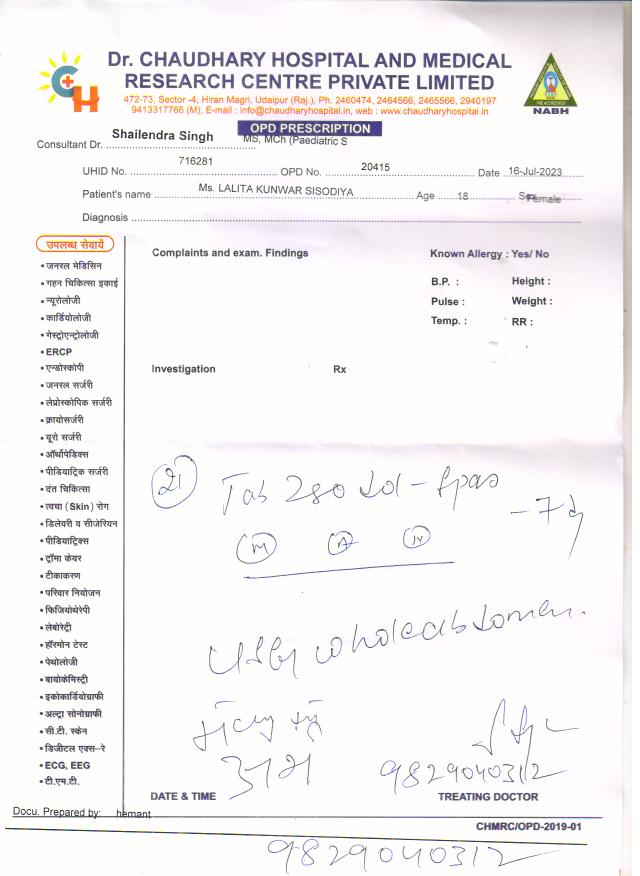 Dr. CHAUDHARY HOSPITAL AND MEDICAL
RESEARCH CENTRE PRIVATE LIMITED
472-73, Sector -4, Hiran Magri, Udaipur (Raj.), Ph. 2460474, 2464566, 2465566, 2940197
9413317766 (M), E-mail : info@chaudharyhospital.in, web : www.chaudharyhospital.in
CH
PRE ACCREDITED
NABH
OPD PRESCRIPTION
Consultant Dr. Shailendra Singh MS, MCh (Paediatric S
UHID No. 716281 OPD No. 20415 Date 16-Jul-2023
Patient's name Ms. LALITA KUNWAR SISODIYA Age 18 Sex Female
Diagnosis
उपलब्ध सेवायें
• जनरल मेडिसिन
• गहन चिकित्सा इकाई
• न्यूरोलोजी
• कार्डियोलोजी
• गेस्ट्रोएन्ट्रोलोजी
• ERCP
• एन्डोस्कोपी
• जनरल सर्जरी
• लेप्रोस्कोपिक सर्जरी
• क्रायोसर्जरी
• यूरो सर्जरी
• ऑर्थोपेडिक्स
• पीडियाट्रिक सर्जरी
• दंत चिकित्सा
• त्वचा (Skin) रोग
• डिलेवरी व सीजेरियन
• पीडियाट्रिक्स
• ट्रॉमा केयर
• टीकाकरण
• परिवार नियोजन
• फिजियोथेरेपी
• लेबोरेट्री
• हॉरमोन टेस्ट
• पेथोलोजी
• बायोकेमिस्ट्री
• इकोकार्डियोग्राफी
• अल्ट्रा सोनोग्राफी
• सी.टी. स्केन
• डिजीटल एक्स–रे
• ECG, EEG
• टी.एम.टी.
Complaints and exam. Findings
Known Allergy : Yes/ No
B.P. : Height :
Pulse : Weight :
Temp. : RR :
Investigation Rx
21 Tab
- 7
M A N
whole abdomen.
9829040312
DATE & TIME TREATING DOCTOR
Docu. Prepared by: hemant
CHMRC/OPD-2019-01
9829040312